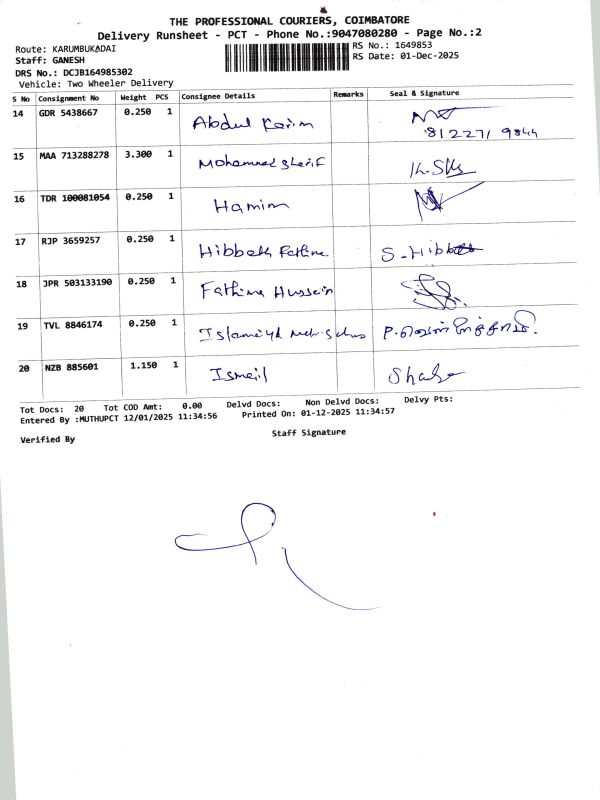 THE PROFESSIONAL COURIERS, COIMBATORE
Delivery Runsheet - PCT - Phone No.:9047080280 - Page No.:2
Route: KARUMBUKADAI
RS No.: 1649853
Staff: GANESH
RS Date: 01-Dec-2025
DRS No.: DCJB164985302
Vehicle: Two Wheeler Delivery
S No Consignment No Weight PCS Consignee Details Remarks Seal & Signature
14 GDR 5438667 0.250 1 Abdul Karim
812271 9844
15 MAA 713288278 3.300 1 Mohammed Sherif
16 TDR 100081054 0.250 1 Hamim
17 RJP 3659257 0.250 1 Hibbath Fathima S-Hibbath
18 JPR 503133190 0.250 1 Fathima Hussein
19 TVL 8846174 0.250 1
20 NZB 885601 1.150 1 Ismail
Tot Docs: 20 Tot COD Amt: 0.00 Delvd Docs: Non Delvd Docs: Delvy Pts:
Entered By :MUTHUPCT 12/01/2025 11:34:56 Printed On: 01-12-2025 11:34:57
Verified By Staff Signature